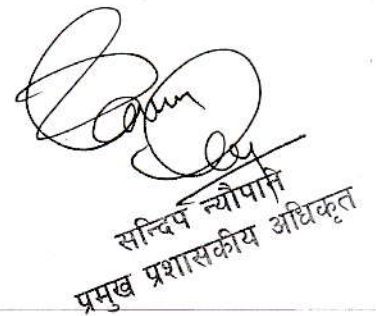 सन्दिप न्यौपाने
प्रमुख प्रशासकीय अधिकृत